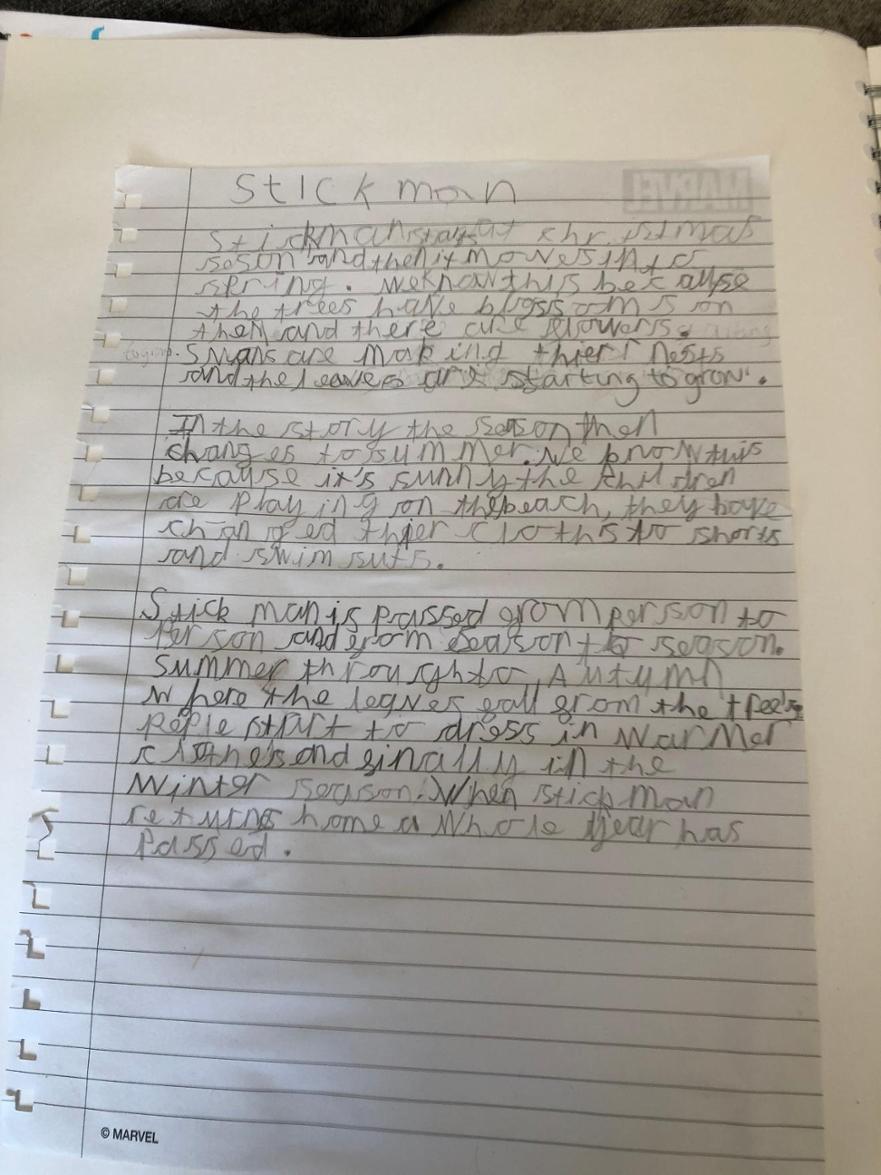 MARVEL
Stickman
Stickman starts at christmas
seson and then it moves into
spring. We know this becauyse
the trees have blossoms on
them and there are flowers.
Swans are making thier nests
and the leaves are starting to grow.
In the story the season then
changes to summer. We know this
because it's sunny the children
are playing on the beach, they have
changed thier cloths to shorts
and swim suts.
Stick man is passed from person to
Person and from season to season.
Summer throught to Autumn
where the leaves fall from the trees
Peple start to dress in warmer
clothes and finally in the
Winter season. When stick man
returns home a whole year has
passed.
© MARVEL